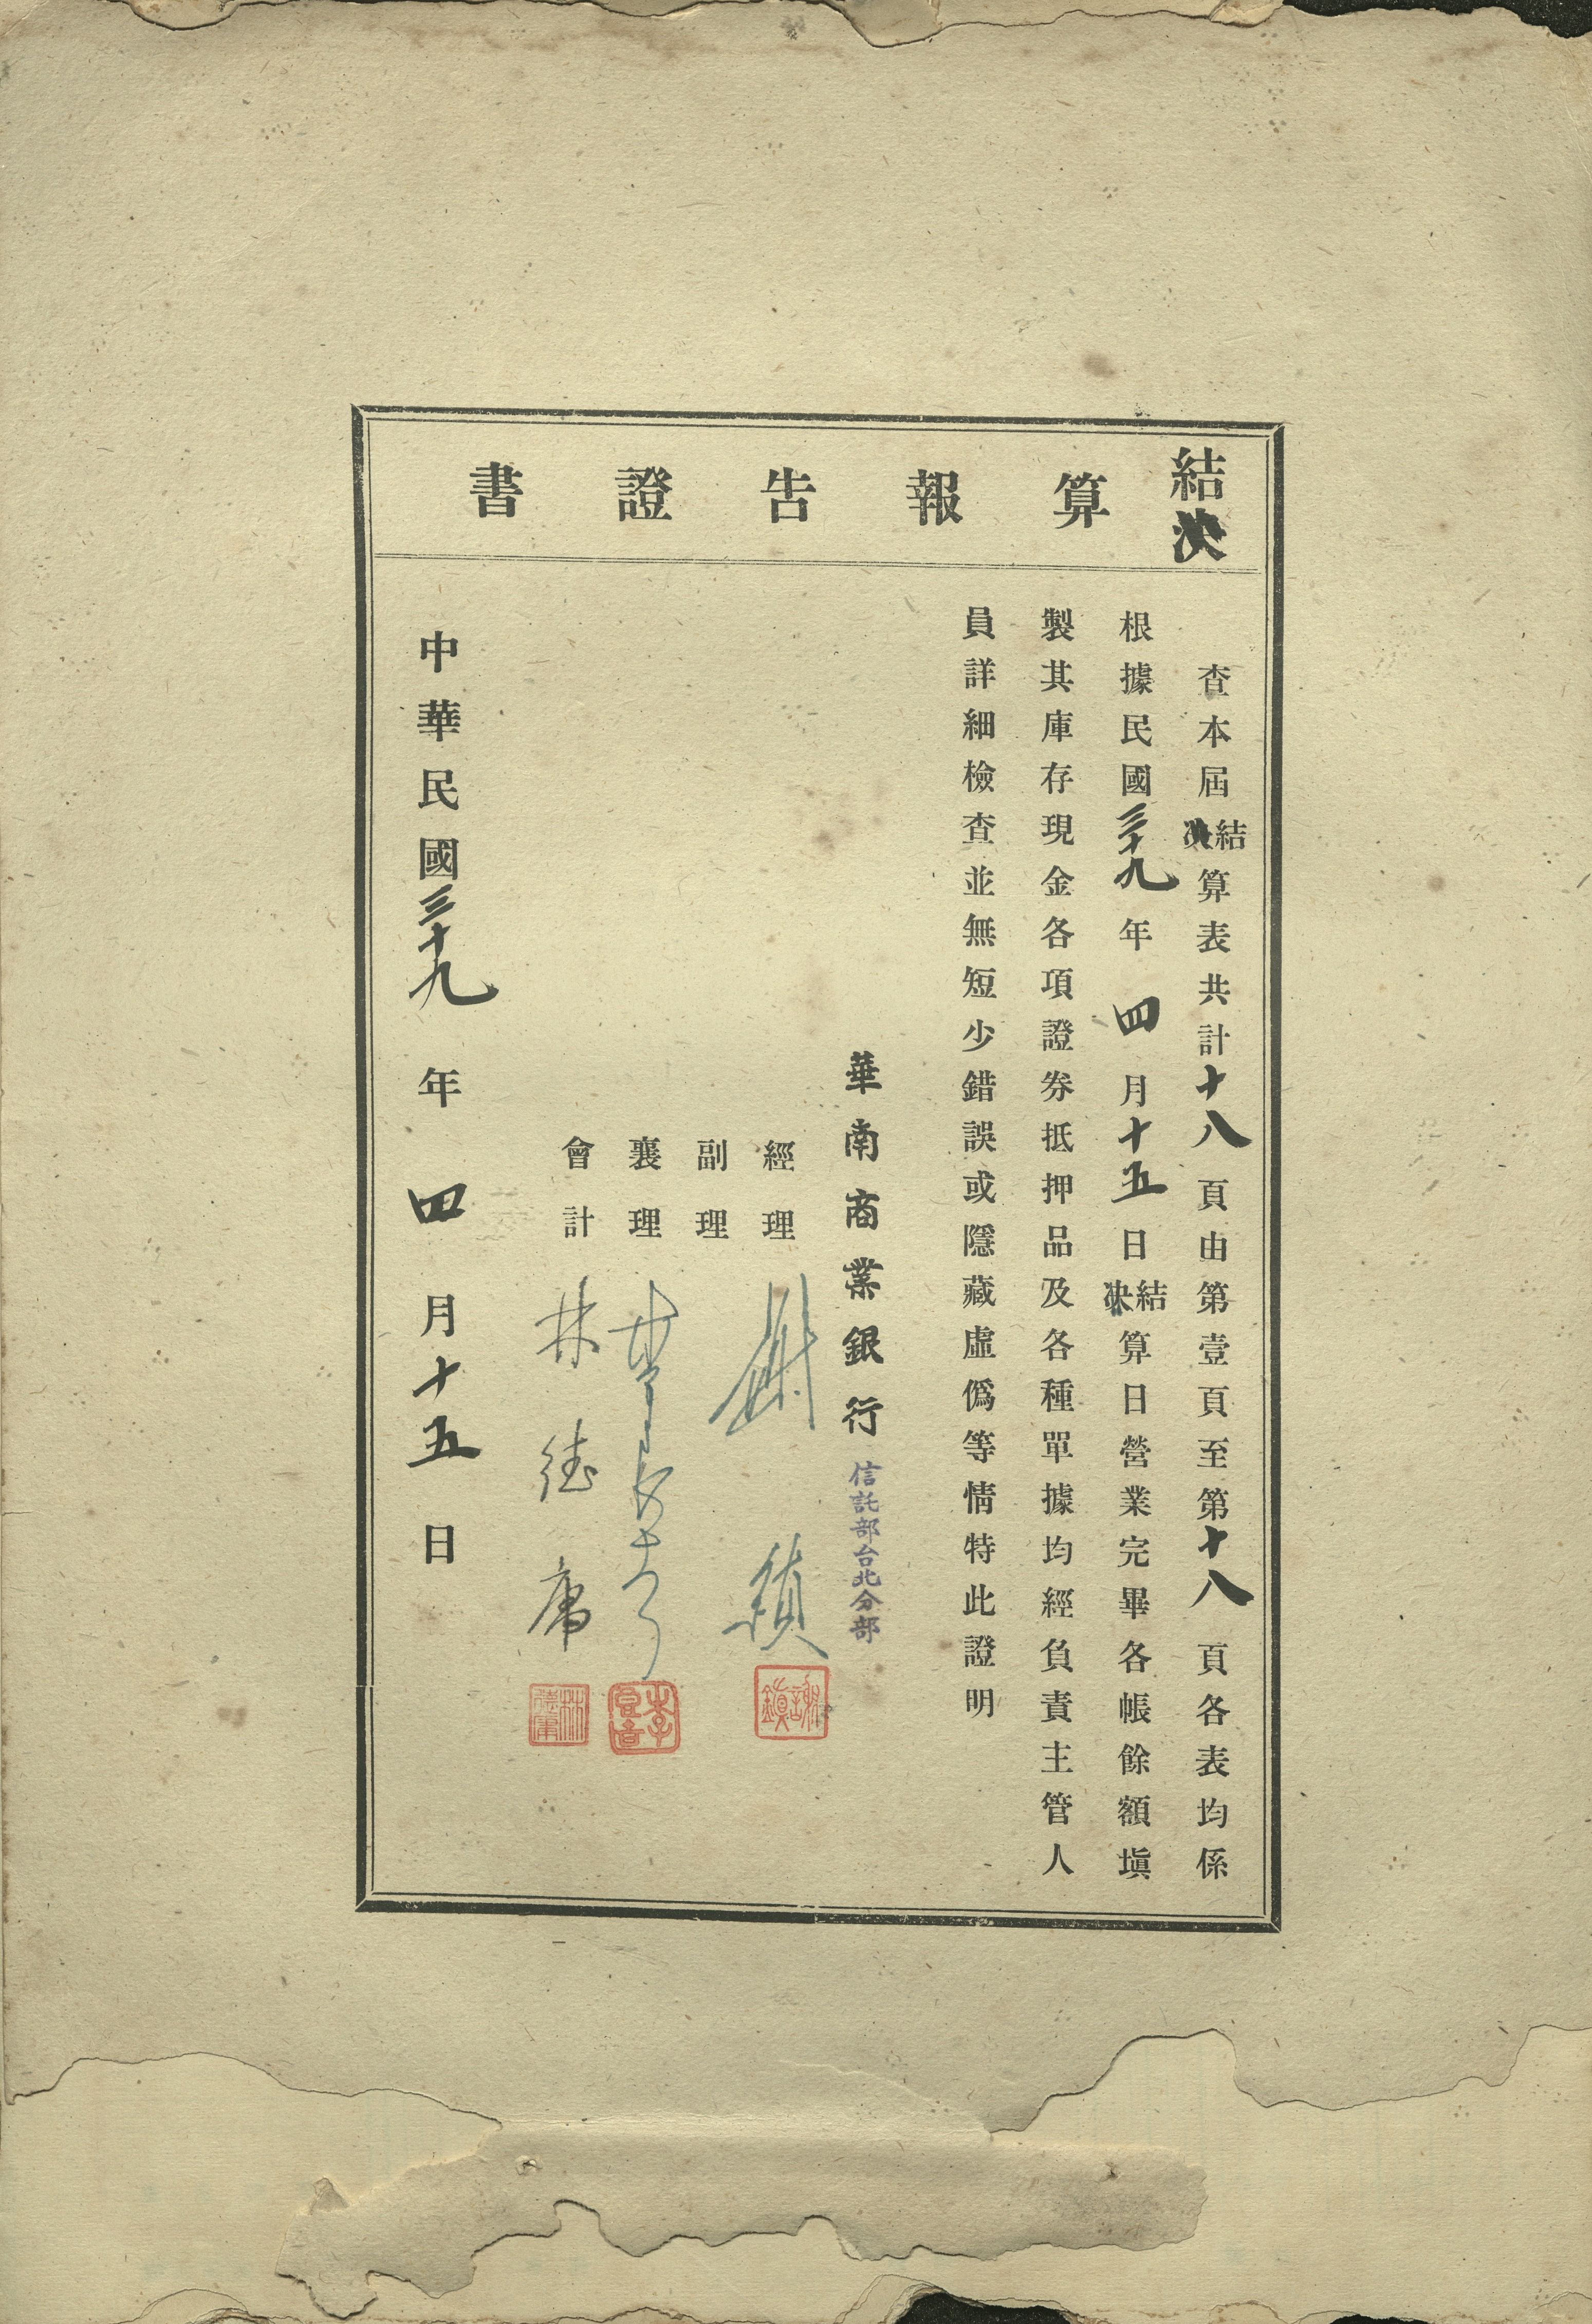 結決算報告證書
查本屆結決算表共計十八頁由第壹頁至第十八頁各表均係
根據民國三十九年四月十五日結決算日營業完畢各帳餘額塡
製其庫存現金各項證券抵押品及各種單據均經負責主管人
員詳細檢查並無短少錯誤或隱藏虛僞等情特此證明
華南商業銀行信託部台北分部
經理 謝鎮
謝鎮
副理
襄理
會計 林德庸
林德庸
中華民國三十九年四月十五日